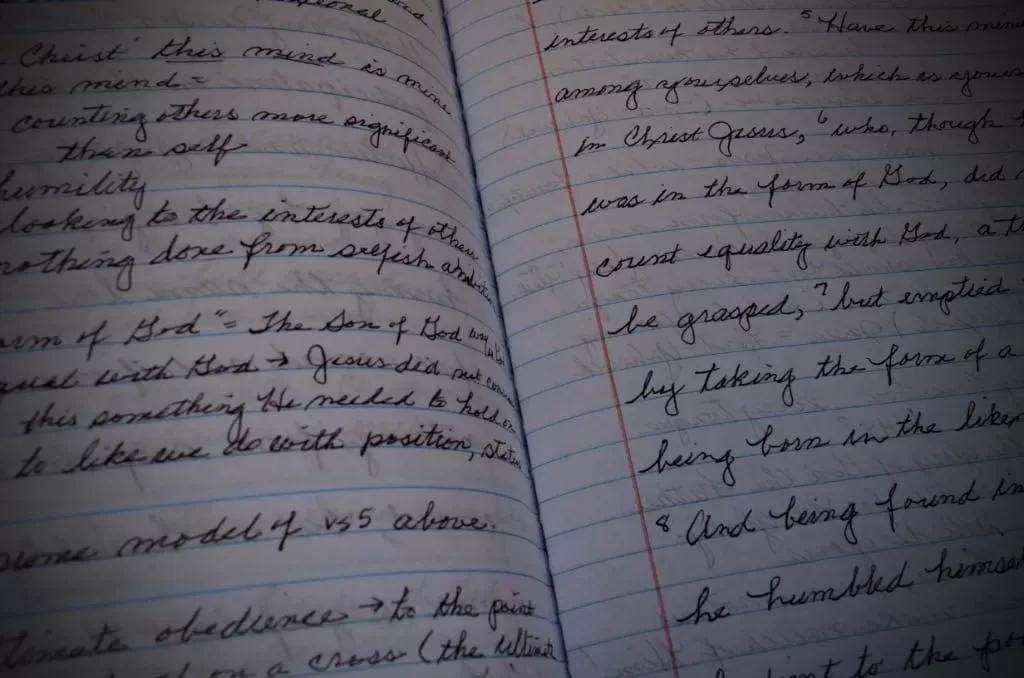 and
Christ this mind is mine
this mind =
counting others more significant
than self
humility
looking to the interests of others
nothing done from selfish ambition
of God" = The Son of God
with God → Jesus did not
this something He needed to hold on
to like we do with position,
model of vs5 above.
obedience → to the point
on a cross (the ultimate
interests of others. ⁵ Have this mind
among yourselves, which is
in Christ Jesus, ⁶ who, though
was in the form of God, did
count equality with God, a
be grasped, ⁷ but emptied
by taking the form of a
being born in the
⁸ And being found in
he humbled
to the